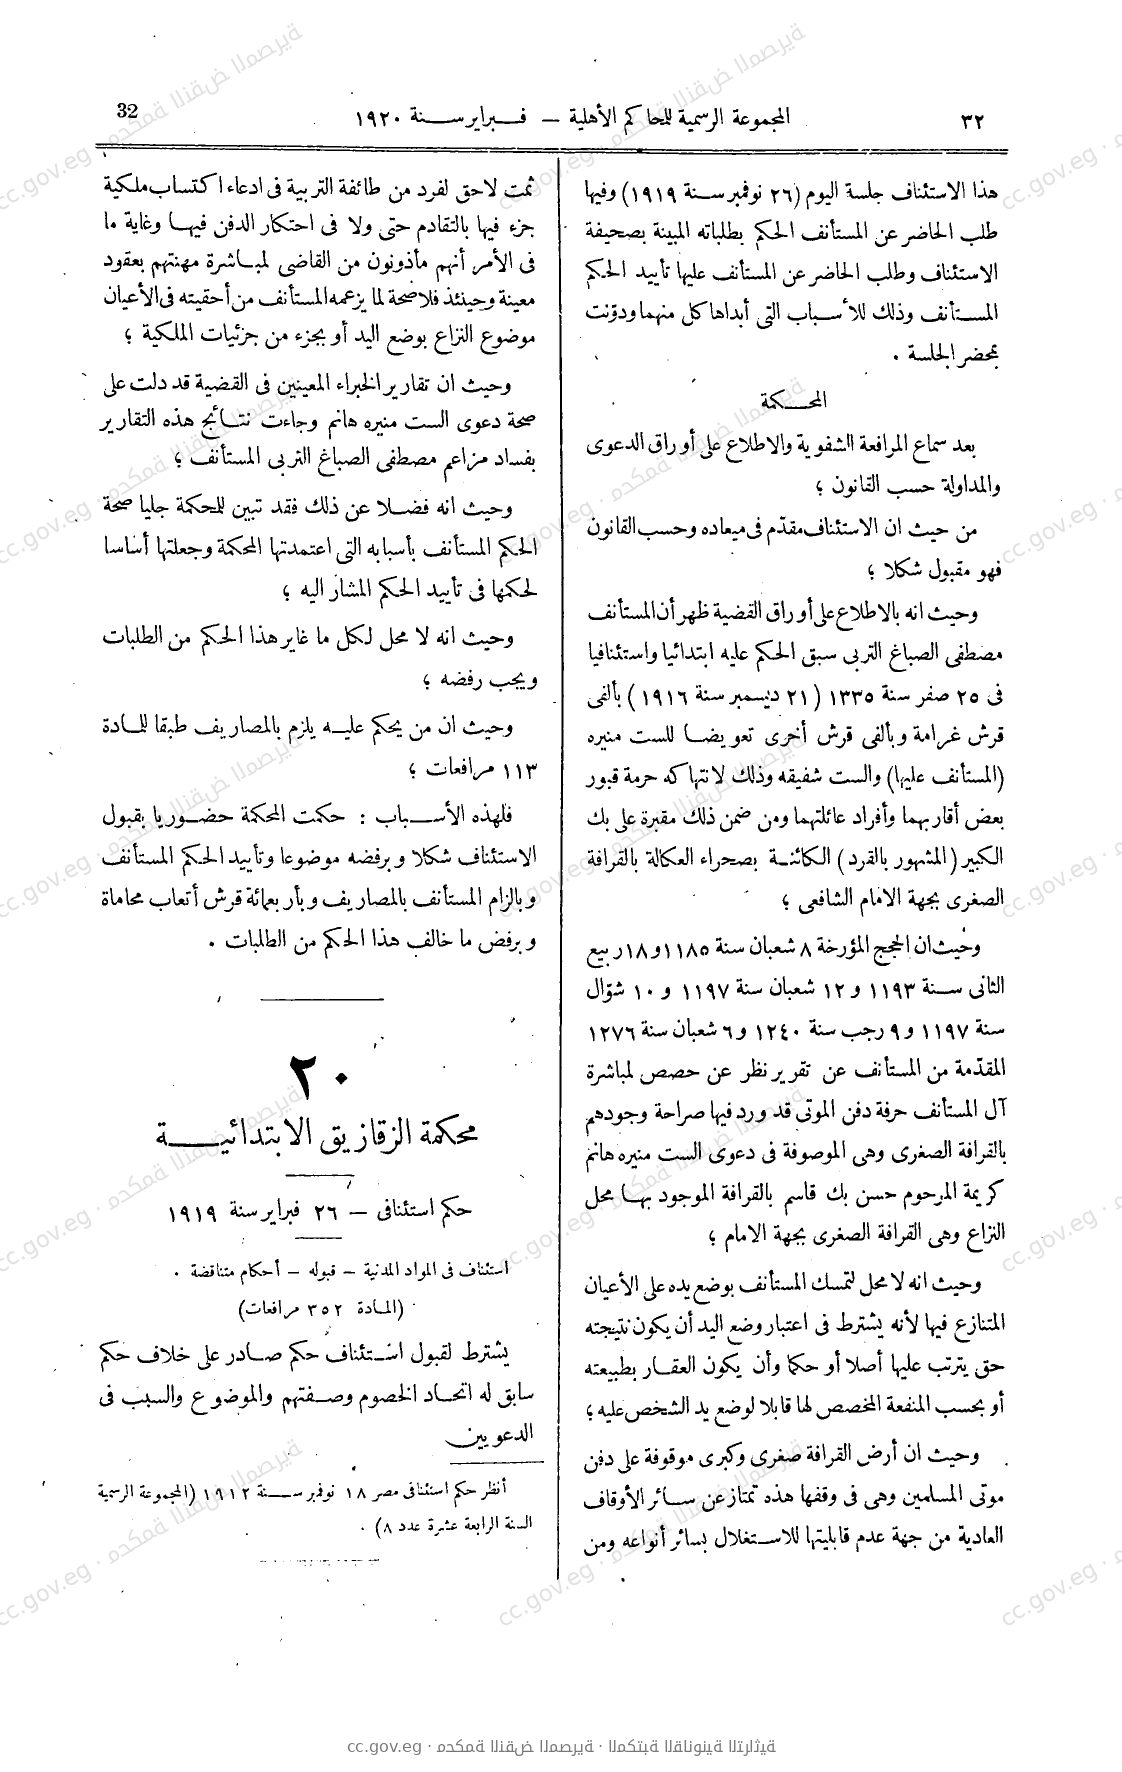 ٣٢
المجموعة الرسمية للمحاكم الأهلية — فبراير سنة ١٩٢٠
32
هذا الاستئناف جلسة اليوم (٢٦ نوفمبر سنة ١٩١٩) وفيها
طلب الحاضر عن المستأنف الحكم بطلباته المبينة بصحيفة
الاستئناف وطلب الحاضر عن المستأنف عليها تأييد الحكم
المستأنف وذلك للأسباب التى أبداها كل منهما ودوّنت
بمحضر الجلسة .
المحكمة
بعد سماع المرافعة الشفوية والاطلاع على أوراق الدعوى
والمداولة حسب القانون ؛
من حيث ان الاستئناف مقدّم فى ميعاده وحسب القانون
فهو مقبول شكلا ؛
وحيث انه بالاطلاع على أوراق القضية ظهر أن المستأنف
مصطفى الصباغ التربى سبق الحكم عليه ابتدائيا واستئنافيا
فى ٢٥ صفر سنة ١٣٣٥ (٢١ ديسمبر سنة ١٩١٦) بألفى
قرش غرامة وبألفى قرش أخرى تعويضا للست منيره
(المستأنف عليها) والست شفيقه وذلك لانتهاكه حرمة قبور
بعض أقاربهما وأفراد عائلتهما ومن ضمن ذلك مقبرة على بك
الكبير (المشهور بالقرد) الكائنة بصحراء العكالة بالقرافة
الصغرى بجهة الامام الشافعى ؛
وحيث ان الحجج المؤرخة ٨ شعبان سنة ١١٨٥ و١٨ ربيع
الثانى سنة ١١٩٣ و١٢ شعبان سنة ١١٩٧ و١٠ شوّال
سنة ١١٩٧ و٩ رجب سنة ١٢٤٠ و٦ شعبان سنة ١٢٧٦
المقدّمة من المستأنف عن تقرير نظر عن حصص لمباشرة
آل المستأنف حرفة دفن الموتى قد ورد فيها صراحة وجودهم
بالقرافة الصغرى وهى الموصوفة فى دعوى الست منيره هانم
كريمة المرحوم حسن بك قاسم بالقرافة الموجود بها محل
النزاع وهى القرافة الصغرى بجهة الامام ؛
وحيث انه لا محل لتمسك المستأنف بوضع يده على الأعيان
المتنازع فيها لأنه يشترط فى اعتبار وضع اليد أن يكون نتيجته
حق يترتب عليها أصلا أو حكما وأن يكون العقار بطبيعته
أو بحسب المنفعة المخصص لها قابلا لوضع يد الشخص عليه ؛
وحيث ان أرض القرافة صغرى وكبرى موقوفة على دفن
موتى المسلمين وهى فى وقفها هذه تمتاز عن سائر الأوقاف
العادية من جهة عدم قابليتها للاستغلال بسائر أنواعه ومن
ثمت لاحق لفرد من طائفة التربية فى ادعاء اكتساب ملكية
جزء فيها بالتقادم حتى ولا فى احتكار الدفن فيها وغاية ما
فى الأمر أنهم مأذونون من القاضى لمباشرة مهنتهم بعقود
معينة وحينئذ فلا صحة لما يزعمه المستأنف من أحقيته فى الأعيان
موضوع النزاع بوضع اليد أو بجزء من جزئيات الملكية ؛
وحيث ان تقارير الخبراء المعينين فى القضية قد دلت على
صحة دعوى الست منيره هانم وجاءت نتائج هذه التقارير
بفساد مزاعم مصطفى الصباغ التربى المستأنف ؛
وحيث انه فضلا عن ذلك فقد تبين للمحكمة جليا صحة
الحكم المستأنف بأسبابه التى اعتمدتها المحكمة وجعلتها أساسا
لحكمها فى تأييد الحكم المشار اليه ؛
وحيث انه لا محل لكل ما غاير هذا الحكم من الطلبات
ويجب رفضه ؛
وحيث ان من يحكم عليه يلزم بالمصاريف طبقا للمادة
١١٣ مرافعات ؛
فلهذه الأسباب : حكمت المحكمة حضوريا بقبول
الاستئناف شكلا وبرفضه موضوعا وتأييد الحكم المستأنف
وبالزام المستأنف بالمصاريف وبأربعمائة قرش أتعاب محاماة
وبرفض ما خالف هذا الحكم من الطلبات .
٢٠
محكمة الزقازيق الابتدائية
حكم استئنافى — ٢٦ فبراير سنة ١٩١٩
استئناف فى المواد المدنية — قبوله — أحكام متناقضة .
(المادة ٣٥٢ مرافعات)
يشترط لقبول استئناف حكم صادر على خلاف حكم
سابق له اتحاد الخصوم وصفتهم والموضوع والسبب فى
الدعويين
أنظر حكم استئنافى مصر ١٨ نوفمبر سنة ١٩١٢ (المجموعة الرسمية
السنة الرابعة عشرة عدد ٨) .
cc.gov.eg · محكمة النقض المصرية · المكتبة القانونية التراثية